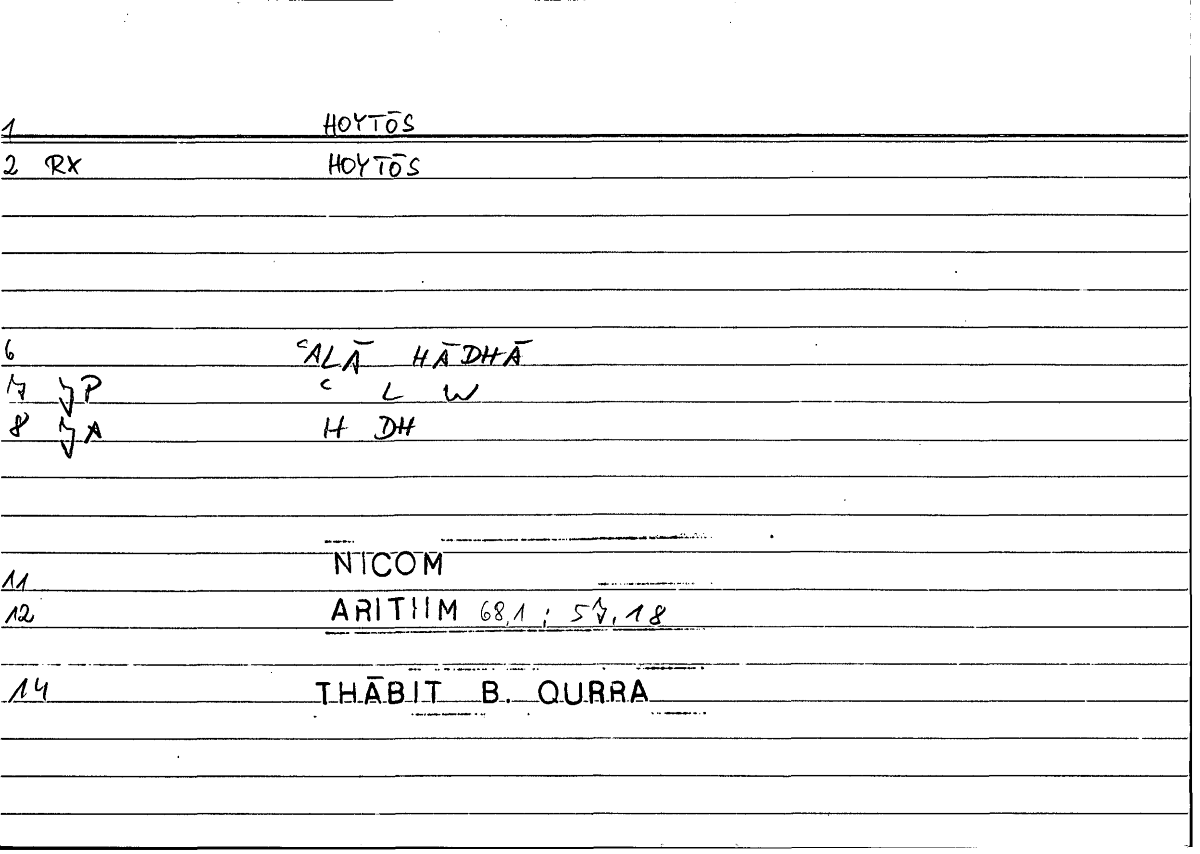 1 HOYTŌS
2 RX HOYTŌS
6 ʿALĀ HĀDHĀ
7 JP ʿ L W
8 JA H DH
11 NICOM
12 ARITHM 68,1 ; 57,18
14 THĀBIT B. QURRA